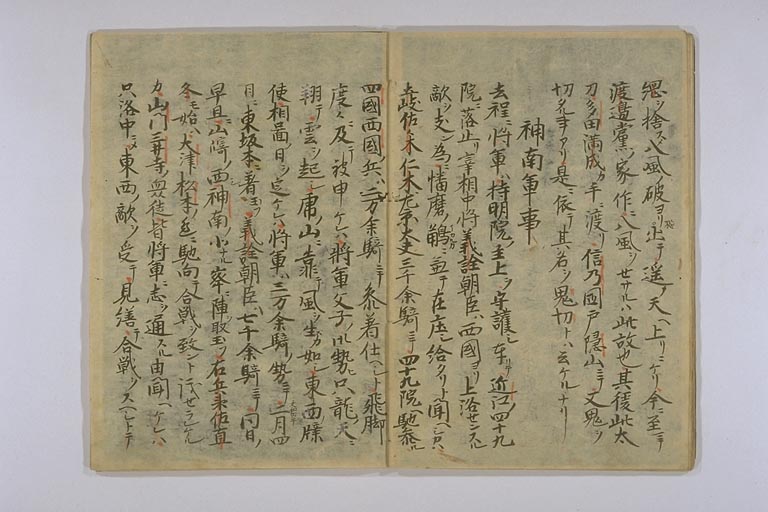 忽ツ捨ス八風ノ破ヨリ出テ遥ノ天ヘ上リニケリ今ニ至マテ
渡邉黨ノ家作ニ八風ツセサルハ此故也其後此太
刀多田満成カ手ニ渡リ信乃國戸隠山ニテ又鬼ツ
切タル事アリ是依テ其名ツ鬼切トハ云ケルナリ
神南軍事
去程ニ將軍ハ持明院ノ主上ツ守護シ奉リテ近江ノ四十九
院ニ落止リ宰相中將義詮朝臣ハ西國ヨリ上洛センスル
敵ツ支ン為ニ幡磨ノ鵤ニ兼テ在庄シ給タリト聞ヘシカハ
土岐佐々木仁木右京大夫三千余騎ニテ四十九院ヘ馳参ル
四國西國ノ兵ハ二万余騎ニテ参着仕ヘシト飛脚
度々ニ及テ被申ケレハ將軍父子ノ御勢ハ只龍ノ天ニ
翔テ雲ツ起シ虎ノ山ニ靠テ風ツ生カ如シ東西牒
使相圖ノ日ツ定ケレハ將軍ハ三万余騎ノ勢ニテ二月四
日ニ東坂本ニ着玉フ義詮朝臣ハ七千余騎ニテ同日ノ
早旦ニ山崎ノ西神南ノ小ナル峯ニ陣取玉フ右兵衛佐直
冬モ始ハ大津松本ノ辺ニ馳向テ合戦ツ致ント議セラレケル
カ山門三井寺ノ衆徒皆將軍ニ志ツ通スル由聞ヘケレハ
只洛中ニテ東西ノ敵ツ受テ見繕テ合戦ツスヘシトテ